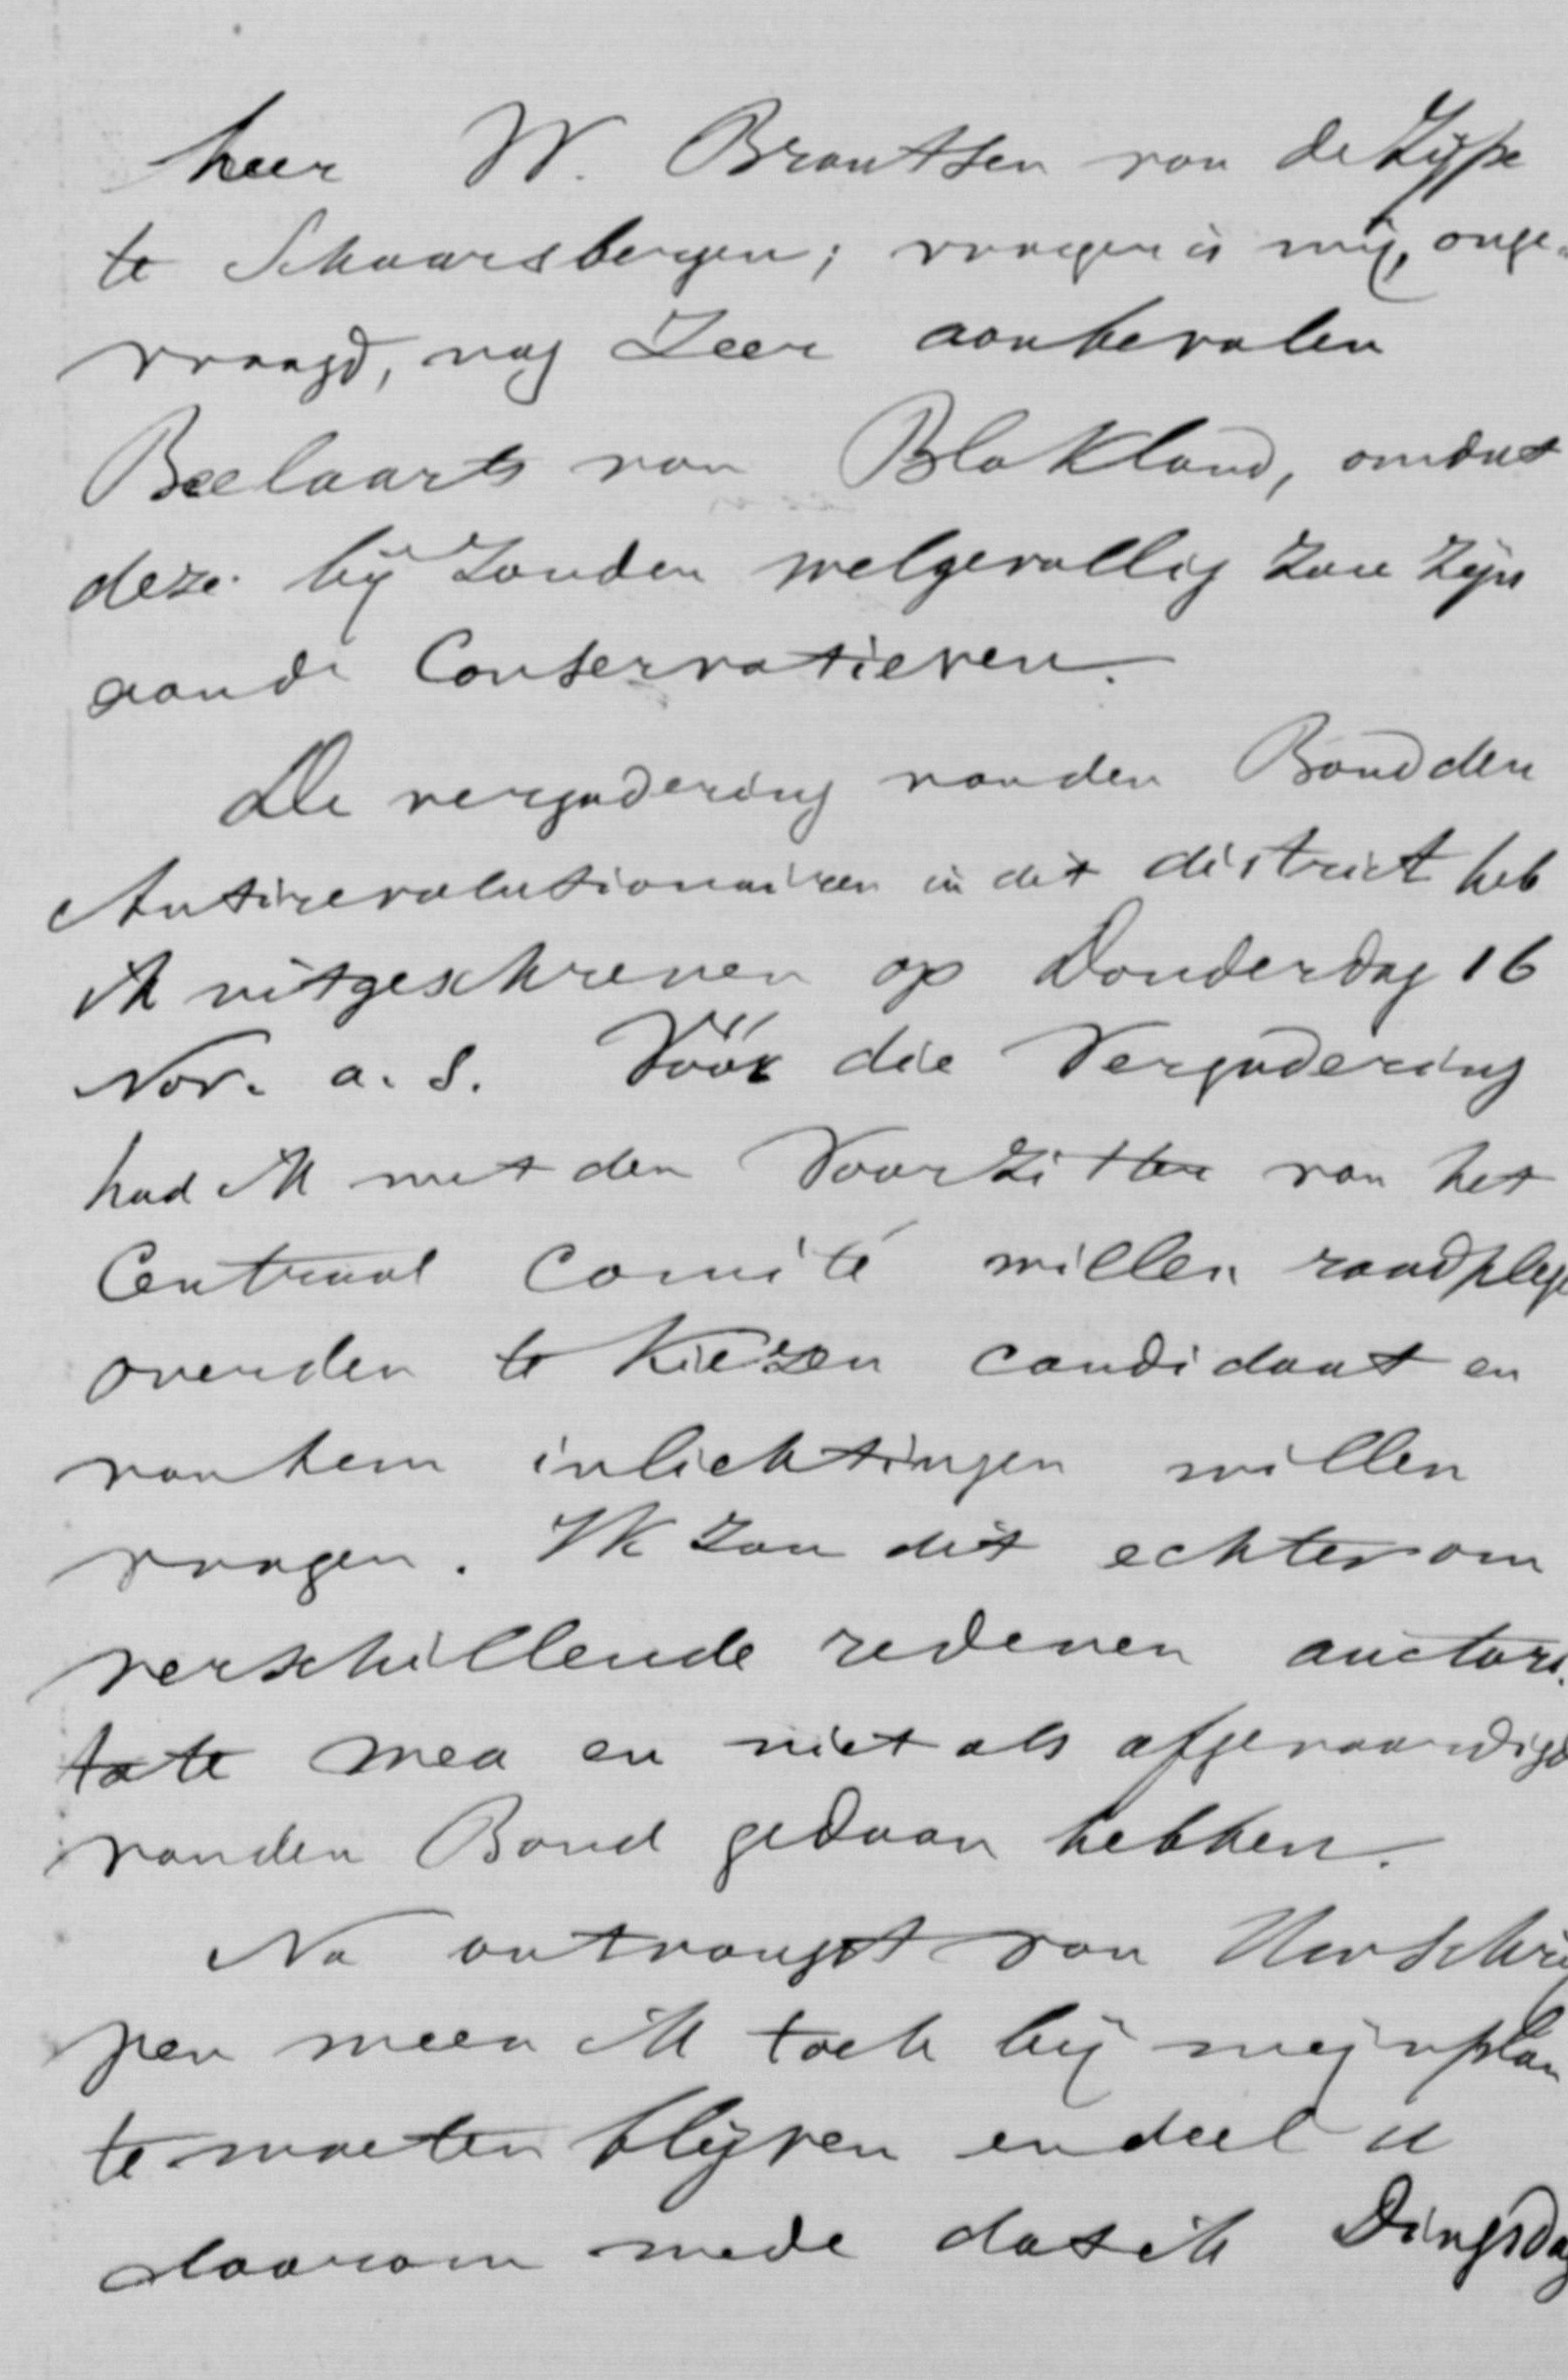 heer W. Brantsen van de Zijpe
te Schaarsbergen; vroeger is mij, onge-
vraagd, nog zeer aanbevolen
Beelaarts van Blokland, omdat
deze bijzonder welgevallig zou zijn
aan de Conservatieven.
De vergadering van den Bond der
Antirevolutionairen in dit district heb
ik uitgeschreven op Donderdag 16
Nov. a. s. Vóór die Vergadering
had ik met den Voorzitter van het
Centraal Comité willen raadplege
over den te kiezen candidaat en
van hem inlichtingen willen
vragen. Ik zou dit echter om
verschillende redenen auctori-
tate mea en niet als afgevaardigd
van den Bond gedaan hebben.
Na ontvangst van Uw schrij
ven meen ik toch bij mijn plan
te moeten blijven en deel u
daarom mede dat ik Dingsdag